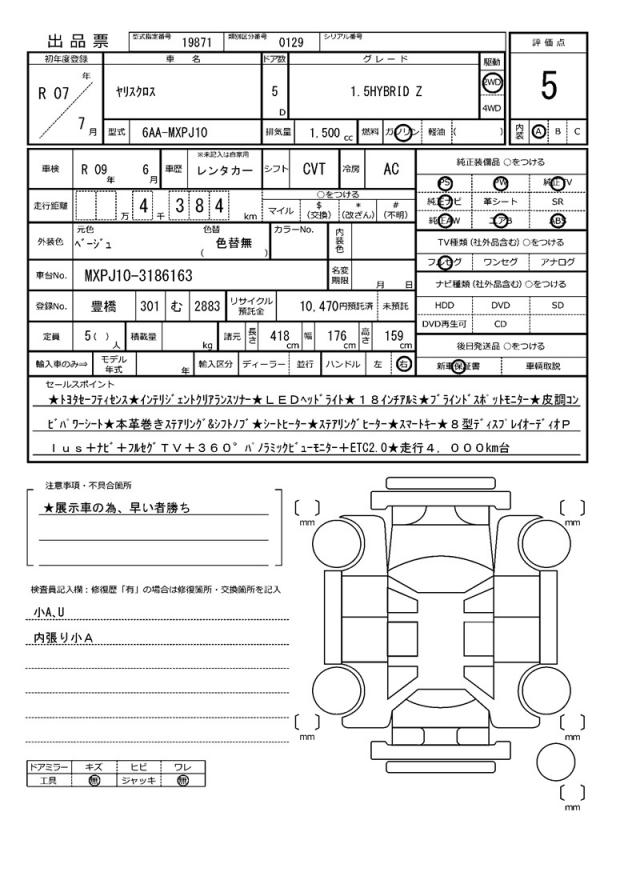 出品票 型式指定番号 19871 類別区分番号 0129 シリアル番号
評価点
5
内装 A B C
初年度登録 車名 ドア数 グレード 駆動
R 07 年 7 月 ヤリスクロス 5 D 1.5HYBRID Z 2WD 4WD
型式 6AA-MXPJ10 排気量 1.500 cc 燃料 ガソリン 軽油 ( )
車検 R 09 年 6 月 車歴 ※未記入は自家用 レンタカー シフト CVT 冷房 AC
走行距離 万 4 千 3 8 4 km ○をつける マイル $ (交換) * (改ざん) # (不明)
外装色 元色 ベージュ 色替 色替無 ( ) カラーNo. 内装色
車台No. MXPJ10-3186163 名変期限 月 日
登録No. 豊橋 301 む 2883 リサイクル預託金 10,470円預託済 未預託
定員 5( ) 人 積載量 kg 諸元 長さ 418 cm 幅 176 cm 高さ 159 cm
輸入車のみ⇒ モデル年式 年 輸入区分 ディーラー 並行 ハンドル 左 右
純正装備品 ○をつける
PS PW 純正TV
純正ナビ 革シート SR
純正AW エアB ABS
TV種類 (社外品含む) ○をつける
フルセグ ワンセグ アナログ
ナビ種類 (社外品含む) ○をつける
HDD DVD SD
DVD再生可 CD
後日発送品 ○をつける
新車保証書 車輌取説
セールスポイント
★トヨタセーフティセンス★インテリジェントクリアランスソナー★ＬＥＤヘッドライト★１８インチアルミ★ブラインドスポットモニター★皮調コン
ビパワーシート★本革巻きステアリング&シフトノブ★シートヒーター★ステアリングヒーター★スマートキー★８型ディスプレイオーディオＰ
ｌｕｓ＋ナビ＋フルセグＴＶ＋３６０°パノラミックビューモニター＋ETC2.0★走行４，０００km台
注意事項・不具合箇所
★展示車の為、早い者勝ち
検査員記入欄：修復歴「有」の場合は修復箇所・交換箇所を記入
小A、U
内張り小Ａ
ドアミラー キズ ヒビ ワレ
工具 無 ジャッキ 無
mm mm
mm mm
mm